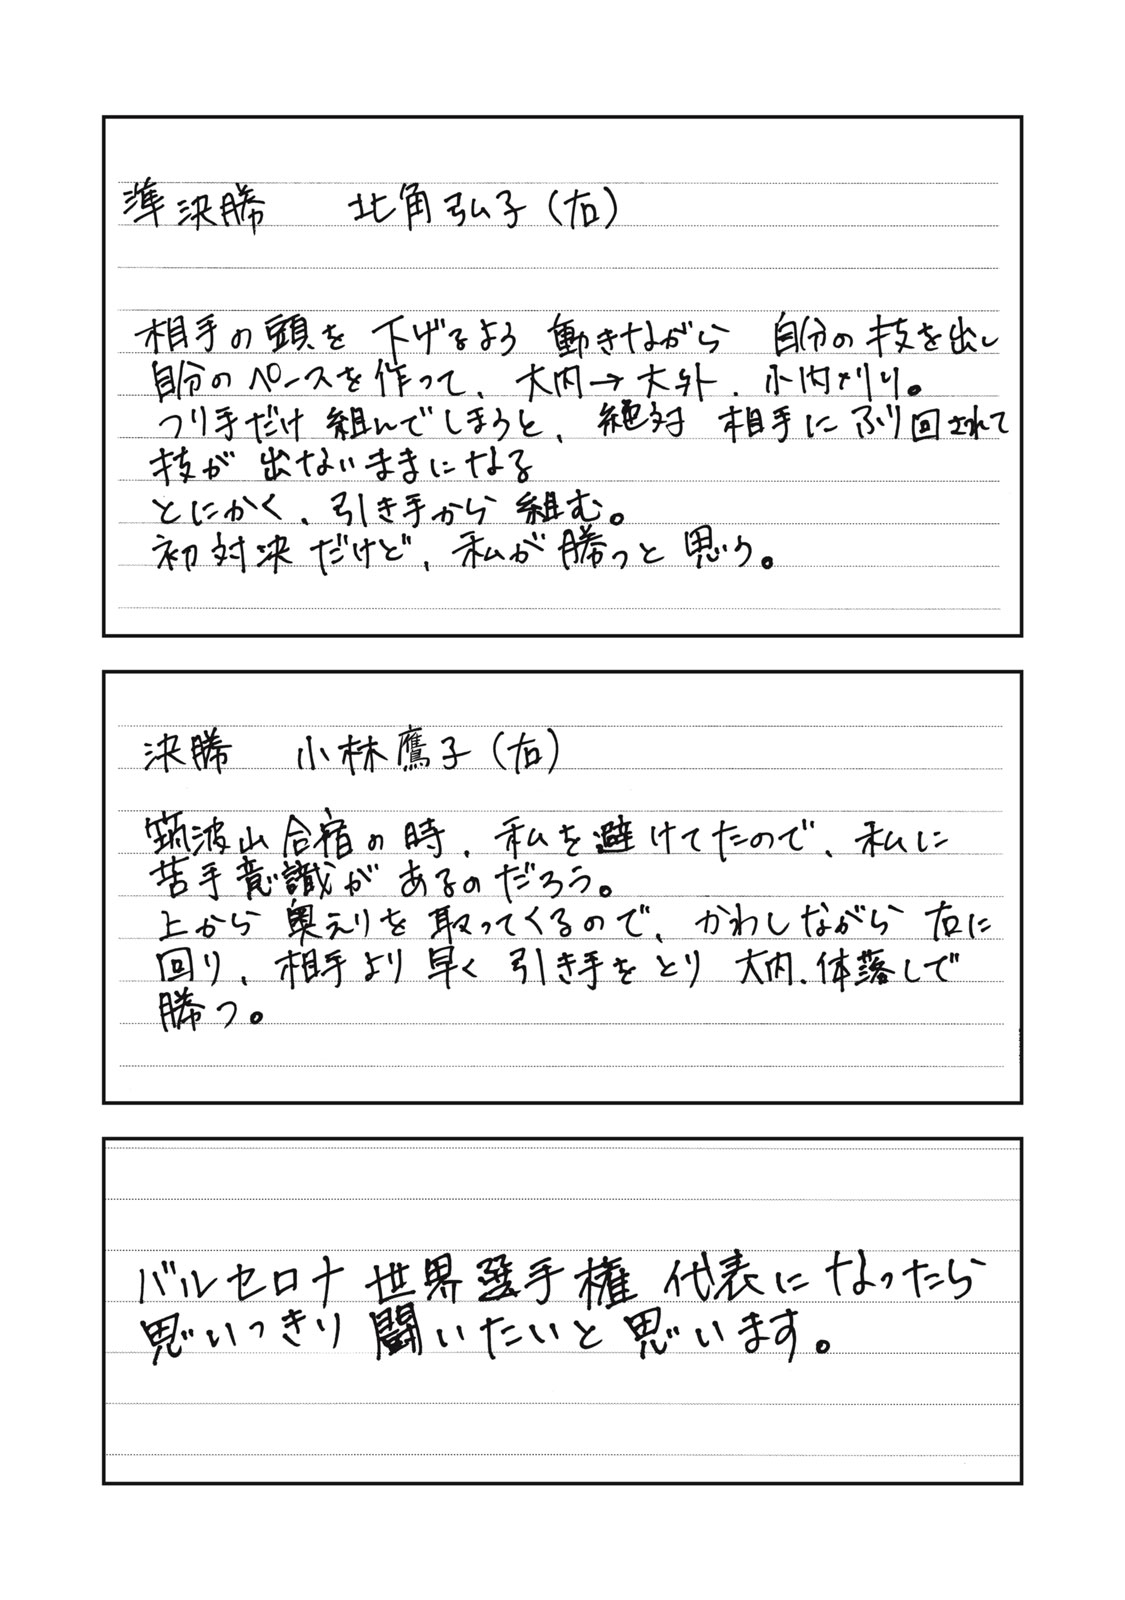 準決勝　北角弘子（右）
相手の頭を下げるよう動きながら　自分の技を出し
自分のペースを作って、大内→大外、小内刈り。
つり手だけ組んでしまうと、絶対相手にふり回されて
技が出ないままになる
とにかく、引き手から組む。
初対決だけど、私が勝つと思う。
決勝　小林鷹子（右）
筑波山合宿の時、私を避けてたので、私に
苦手意識があるのだろう。
上から奥えりを取ってくるので、かわしながら右に
回り、相手より早く引き手をとり　大内、体落しで
勝つ。
バルセロナ世界選手権代表になったら
思いっきり闘いたいと思います。